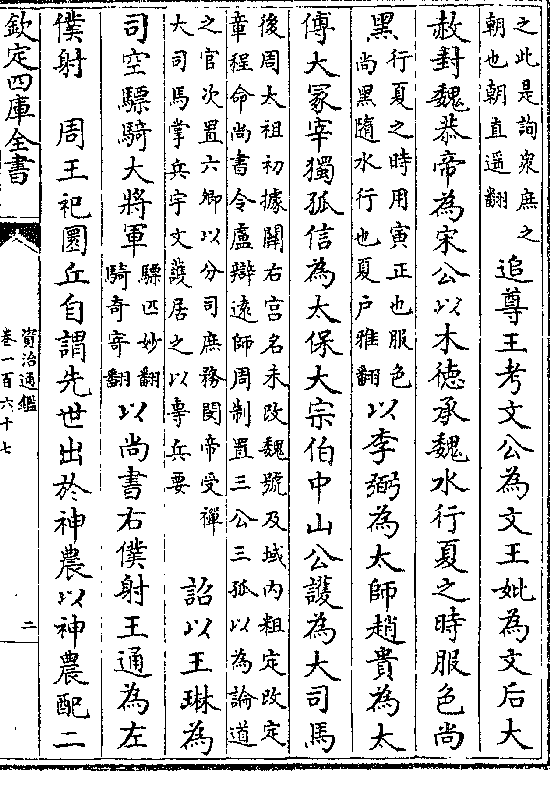 之此是詢衆庶之
朝也朝直遥翻
追尊王考文公為文王妣為文后大
赦封魏恭帝為宋公以木徳承魏水行夏之時服色尚
黑
行夏之時用寅正也服色
尚黑隨水行也夏户雅翻
以李弼為太師趙貴為太
傅大冢宰獨孤信為太保大宗伯中山公䕶為大司馬
後周太祖初據關右宫名未改魏號及域内粗定改定
章程命尚書令盧辯逺師周制置三公三孤以為論道
之官次置六卿以分司庶務閔帝受禪
大司馬掌兵宇文䕶居之以專兵要
詔以王琳為
司空驃騎大將軍
驃匹妙翻
騎奇寄翻
以尚書右僕射王通為左
僕射 周王祀圜丘自謂先世出於神農以神農配二
欽定四庫全書
資治通鑑
卷一百六十七
二